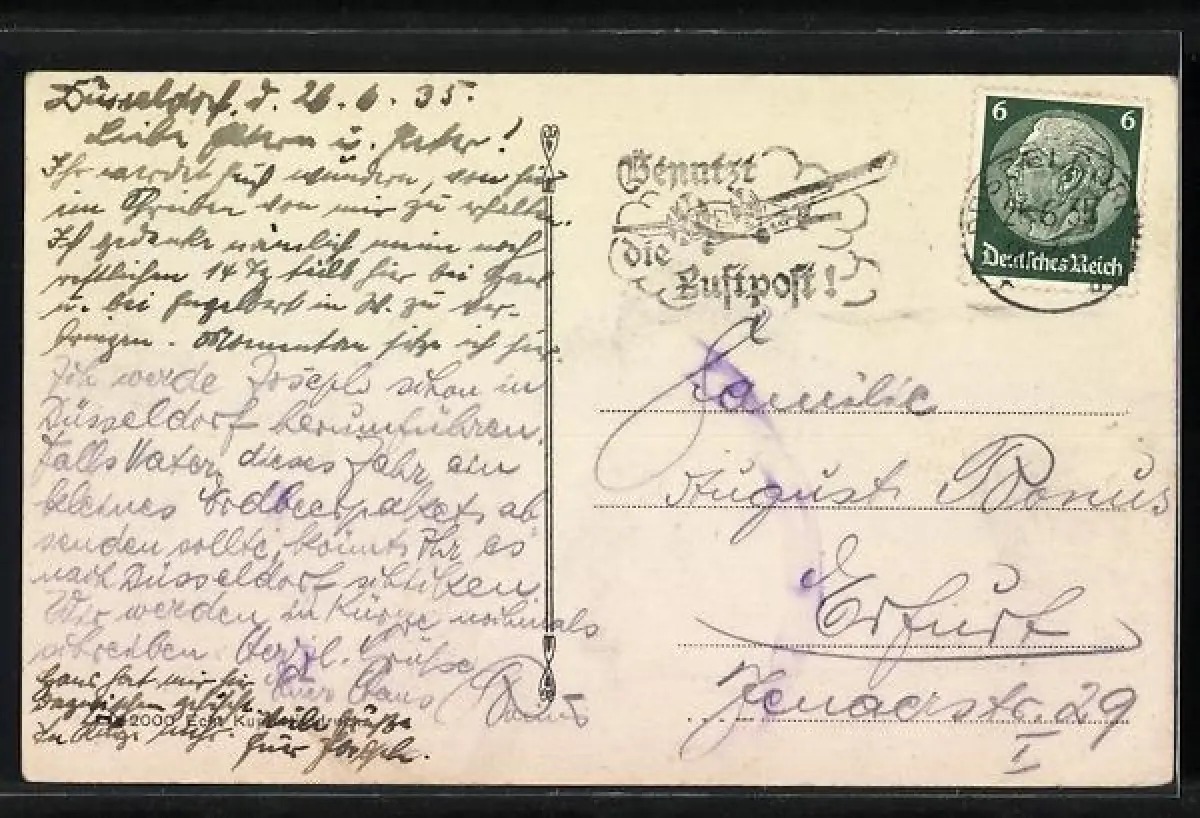 Düsseldorf, d. 26.6.35.
Liebe Eltern u. Peter!
Ihr werdet Euch wundern, von hier
ein Schreiben von mir zu erhalten.
Ich gedenke nämlich meine noch
restlichen 14 Tg teils hier bei Hans
u. bei Engelbert in W. zu ver-
bringen. Momentan sitze ich hier.
Ich werde Joseph schon in
Düsseldorf herumführen.
Falls Vater dieses Jahr ein
kleines Erdbeerpaket ab
senden sollte, könnt Ihr es
nach Düsseldorf schicken.
Wir werden in Kürze nochmals
schreiben. Herzl. Grüsse
Euer Hans
Hans hat mir hier
viele Grüsse
Euer Joseph.
2000 Echt
Benutzt
die
Luftpost!
6 6
Deutsches Reich
Familie
August Bonus
Erfurt
Jenaerstr. 29
I